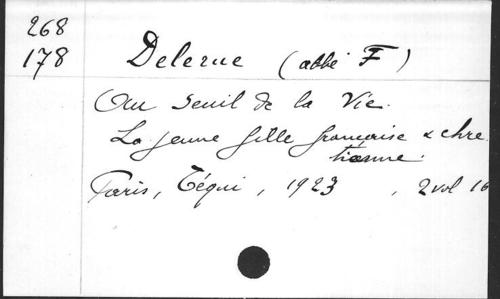 268
178
Delerue (abbé F)
Au seuil de la Vie.
La jeune fille française & chré
tienne.
Paris, Téqui, 1923, 2 vol 16